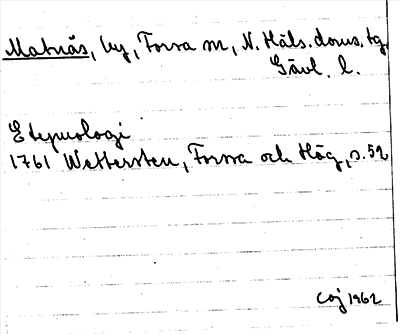 Matnäs, by, Forsa sn, N. Häls. doms. tg,
Gävl. l.
Etymologi
1761 Wettersten, Forssa och Hög, s. 52
COJ 1962